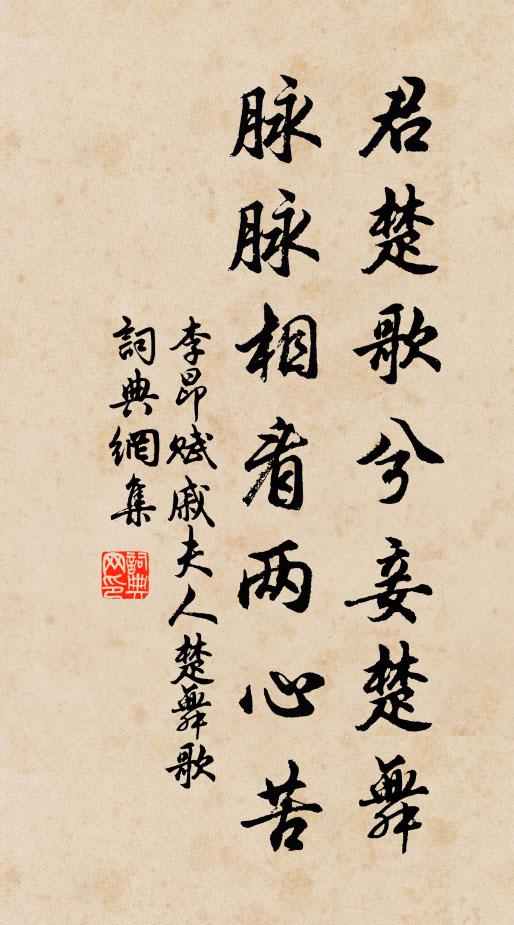 君楚歌兮妾楚舞
脉脉相看两心苦
李昂赋戚夫人楚舞歌
詞典網集
詞典
网印